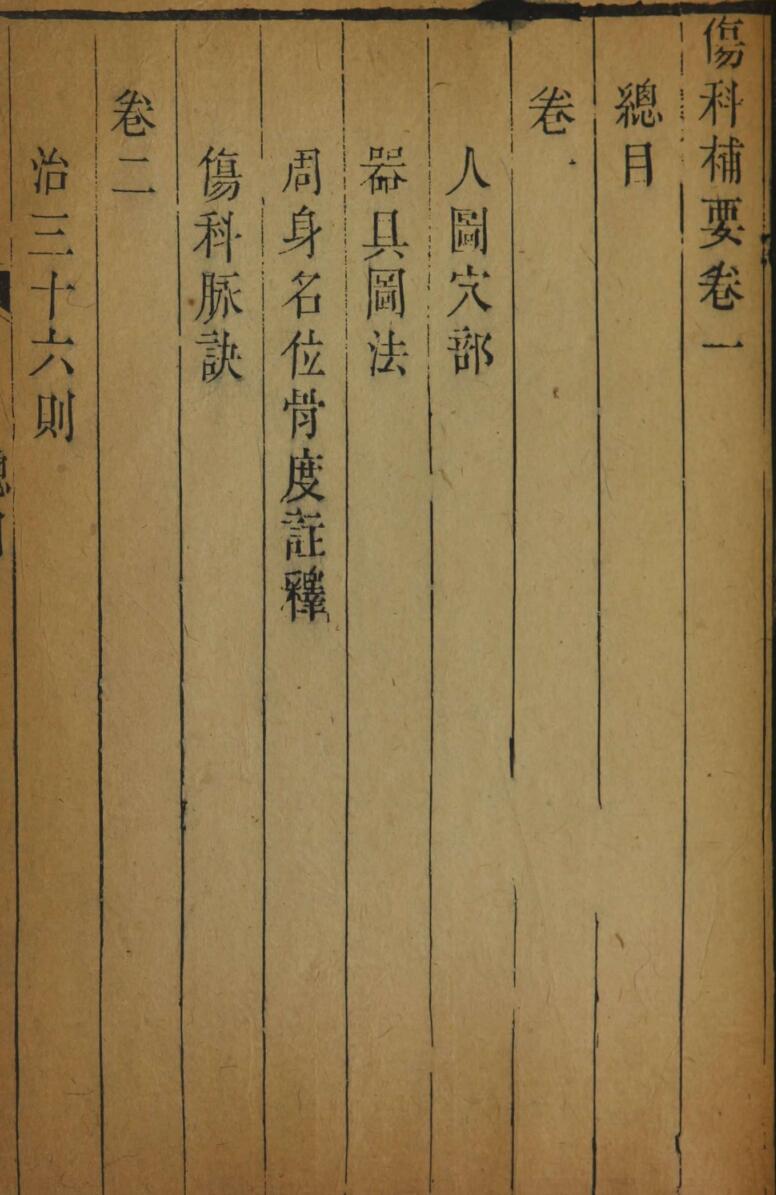 傷科補要卷一
總目
卷一
人圖穴部
器具圖法
周身名位骨度註釋
傷科脈訣
卷二
治三十六則